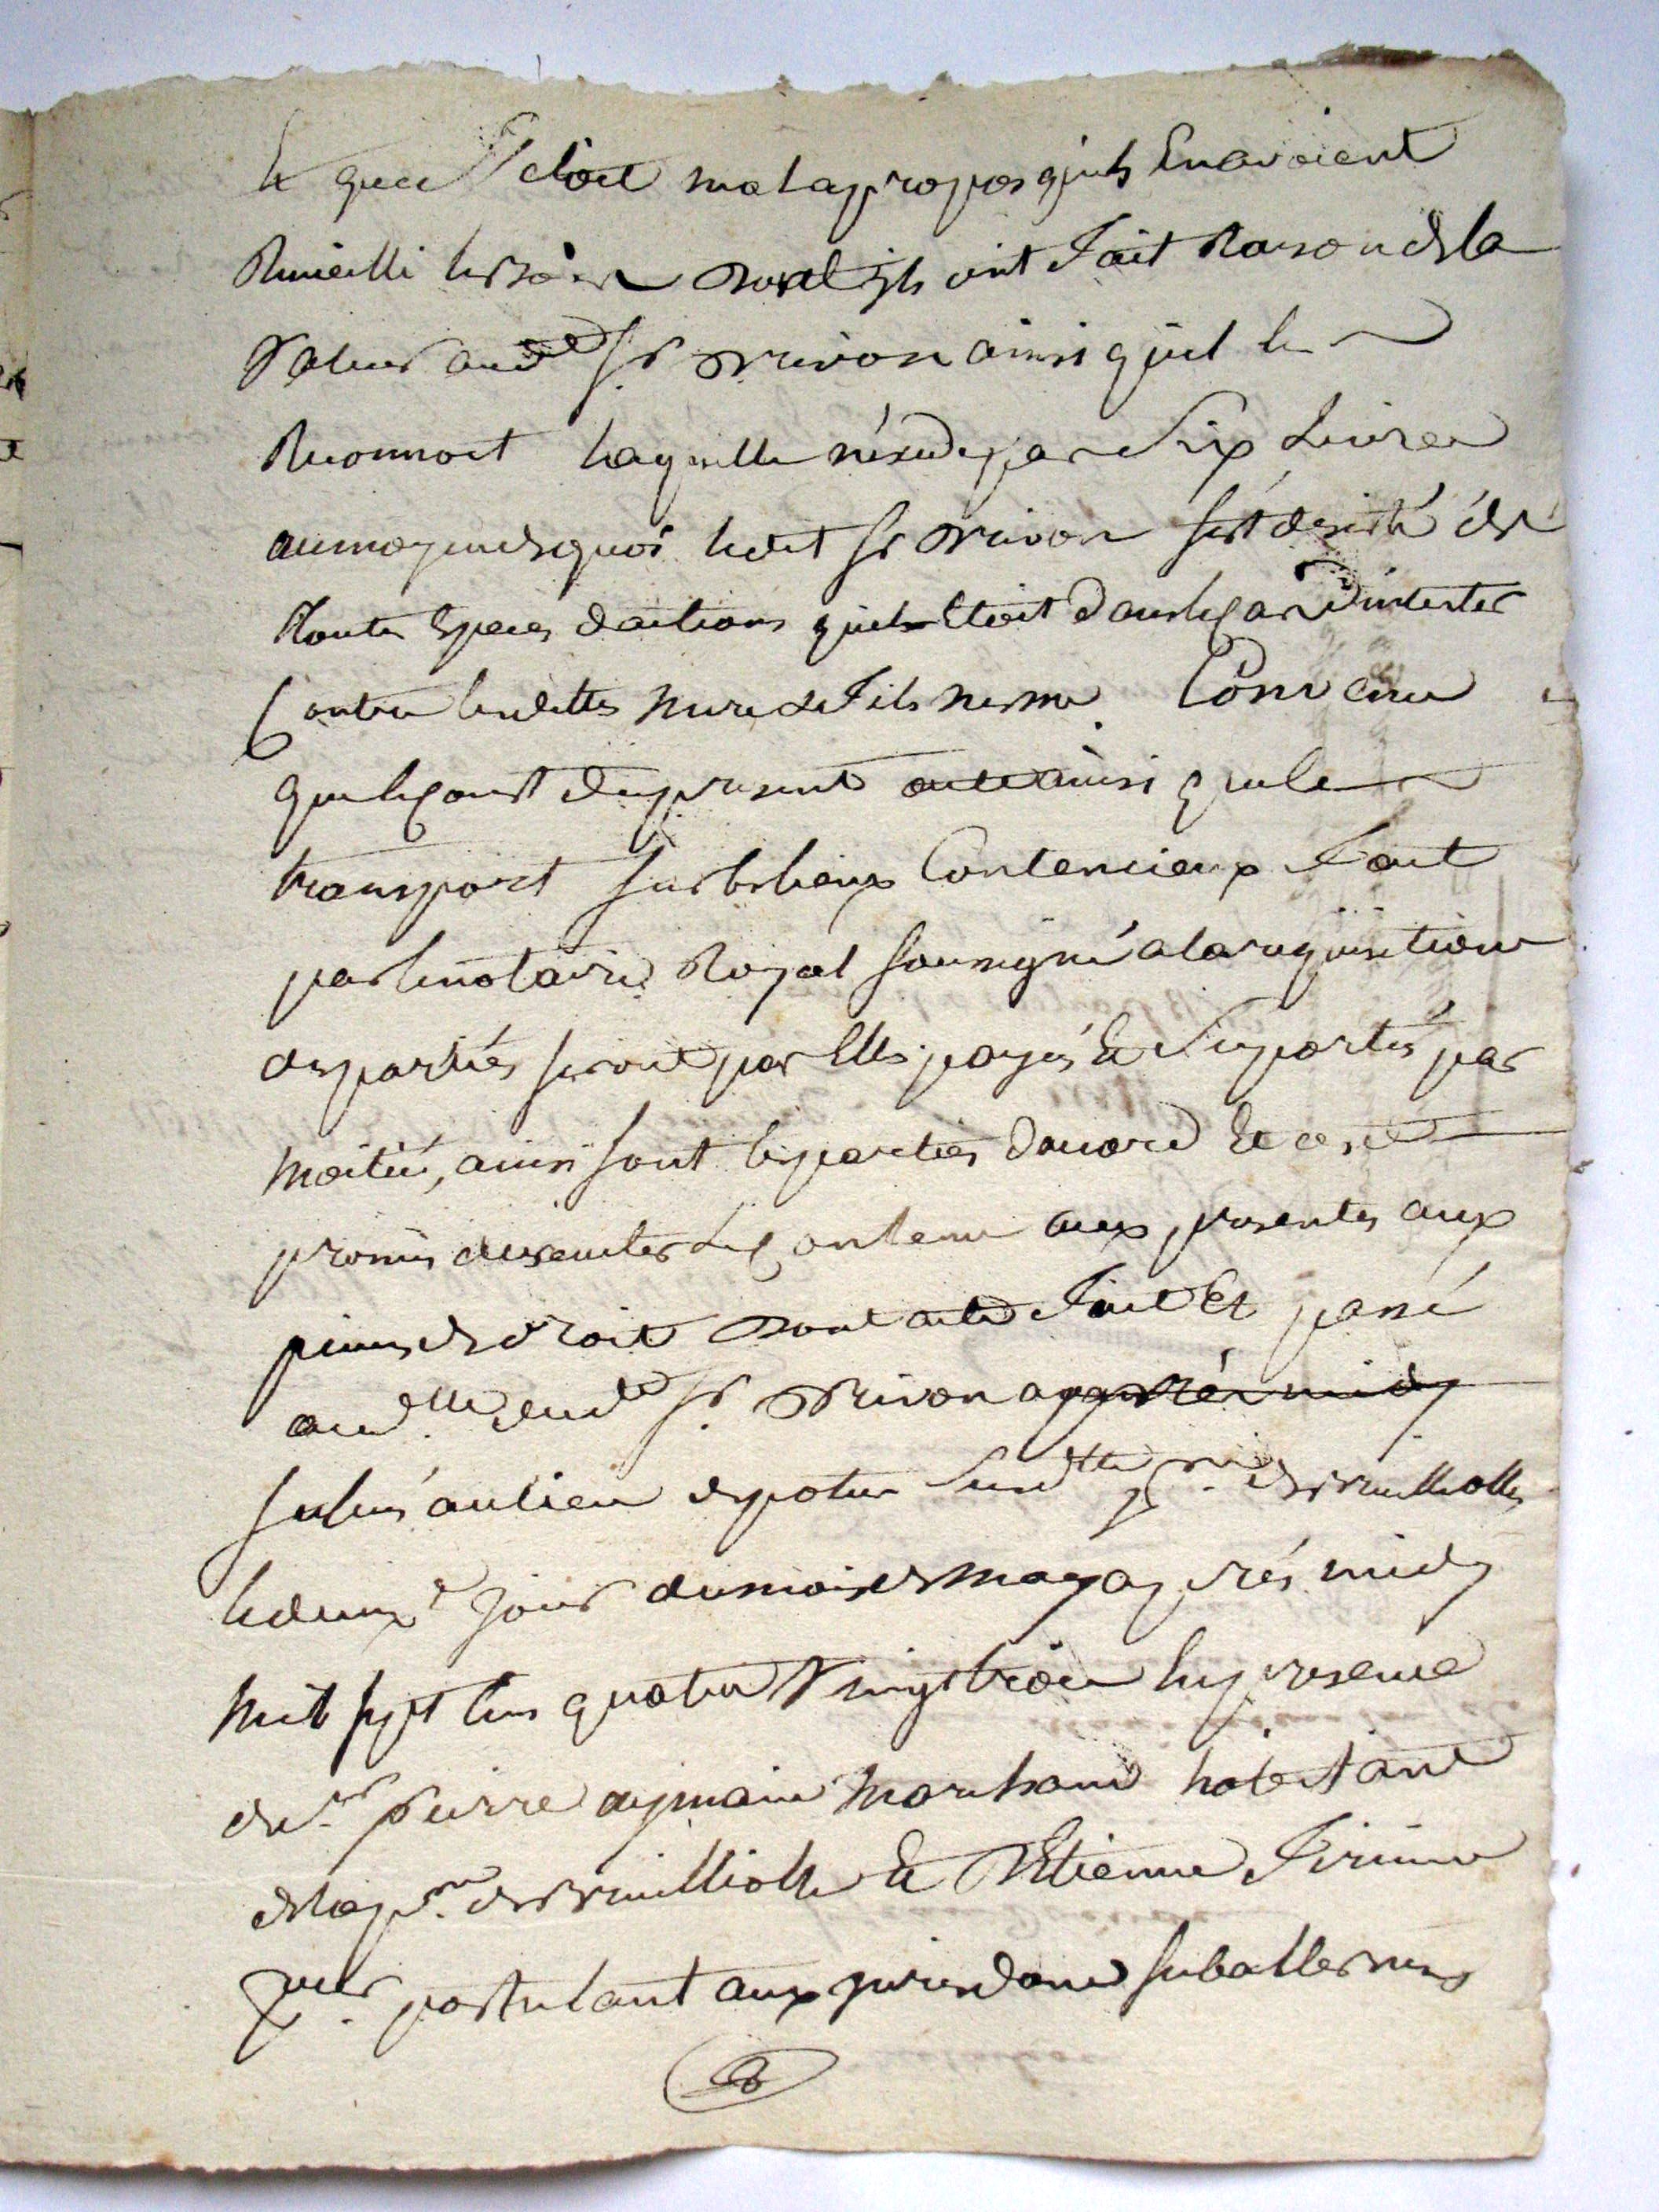 Et que cetoit mal a propos quils Enavoient
Recueilli les noix dont ils ont fait Raison de la
Valeur aud. sr. Privon ainsi quil le
Reconnoit laquelle réside par Six Livres
au moyen de quoi ledit sr Privon sest désisté de
Toutes Especes dactions quil Etoit dans le cas dintenter
Contre lesdittes mere et fils Convenu
que le cout du present acte ainsi que le
transport sur les lieux Contencieux fait
par le notaire Royal soussigné a la requisition
des parties seront par Elles payés Et suportés par
moitié, ainsi sont les parties daccord Et ont
promis dexecuter le Contenu aux presentes aux
peines de droit dont acte fait Et passé
aud. sr. Privon apprés midy
au lieu depotu susd. psse. de
le deuxe jour du mois de may après midy
mil sept cens quatre Vingt trois En presence
de sr. pierre aymain marchand habitant
de la psse. de Et Etienne
pcur. postulant aux jurisdons subalternes